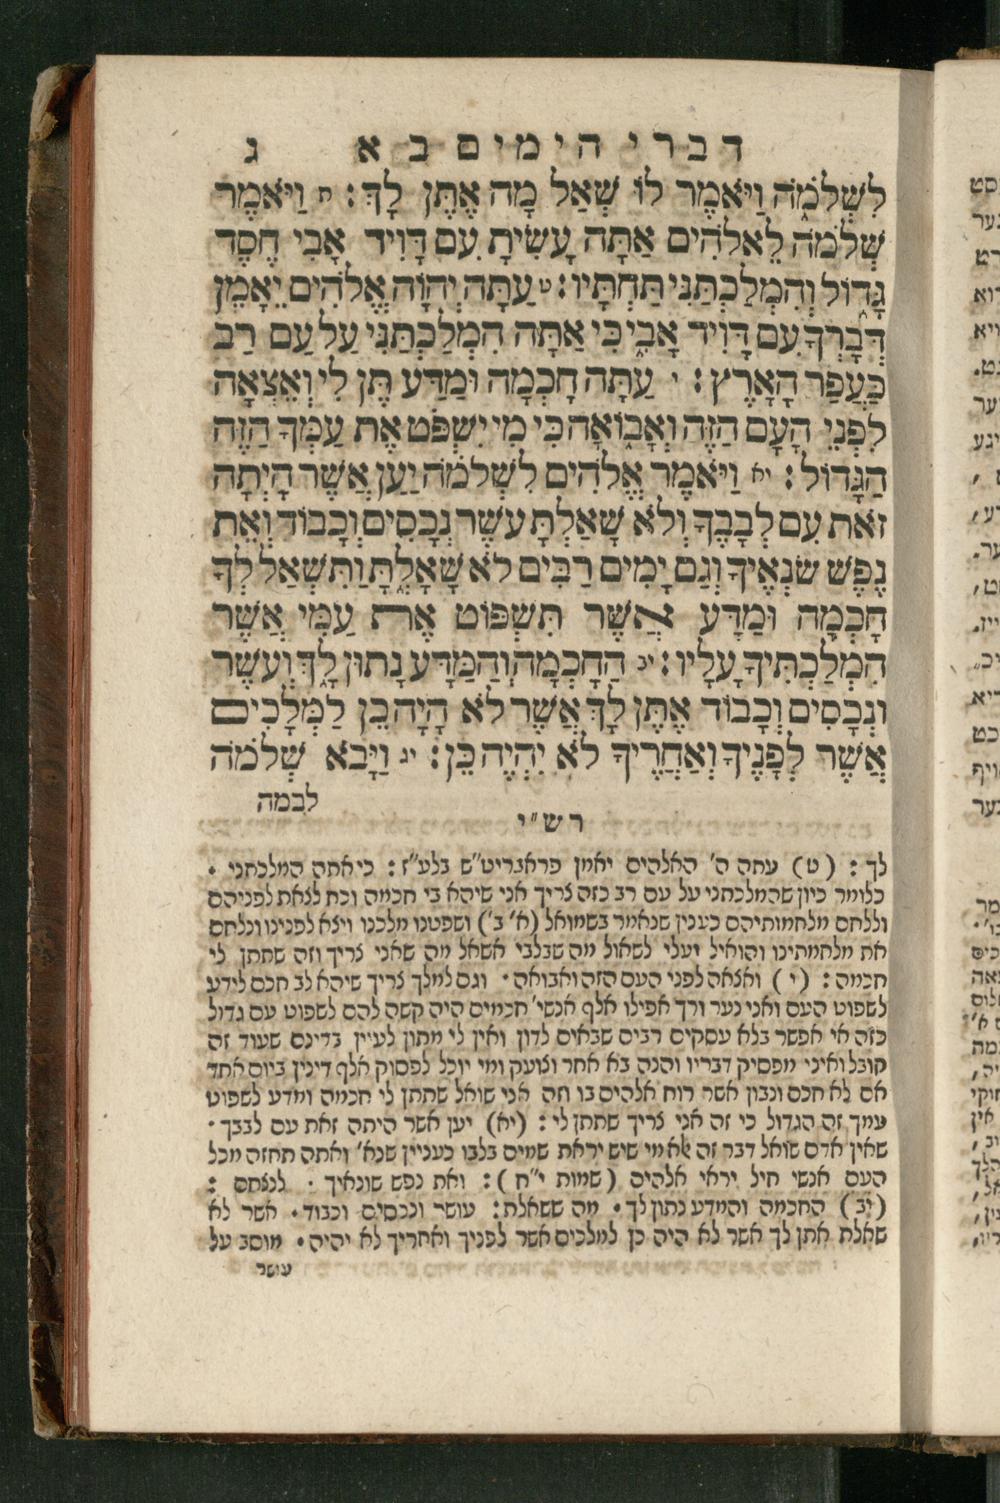 דברי הימים ב א ג
לִשְׁלֹמֹה וַיֹּאמֶר לוֹ שְׁאַל מָה אֶתֶּן לָךְ : ח וַיֹּאמֶר
שְׁלֹמֹה לֵאלֹהִים אַתָּה עָשִׂיתָ עִם דָּוִיד אָבִי חֶסֶד
גָּדוֹל וְהִמְלַכְתַּנִי תַּחְתָּיו : ט עַתָּה יְהוָֹה אֱלֹהִים יֵאָמֵן
דְּבָרְךָ עִם דָּוִיד אָבִי כִּי אַתָּה הִמְלַכְתַּנִי עַל עַם רַב
כַּעֲפַר הָאָרֶץ : י עַתָּה חָכְמָה וּמַדַּע תֶּן לִי וְאֵצְאָה
לִפְנֵי הָעָם הַזֶּה וְאָבוֹאָה כִּי מִי יִשְׁפֹּט אֶת עַמְּךָ הַזֶּה
הַגָּדוֹל : יא וַיֹּאמֶר אֱלֹהִים לִשְׁלֹמֹה יַעַן אֲשֶׁר הָיְתָה
זֹאת עִם לְבָבֶךָ וְלֹא שָׁאַלְתָּ עשֶׁר נְכָסִים וְכָבוֹד וְאֵת
נֶפֶשׁ שֹׂנְאֶיךָ וְגַם יָמִים רַבִּים לֹא שָׁאָלְתָּ וַתִּשְׁאַל לְךָ
חָכְמָה וּמַדָּע אֲשֶׁר תִּשְׁפּוֹט אֶת עַמִּי אֲשֶׁר
הִמְלַכְתִּיךָ עָלָיו : יב הַחָכְמָה וְהַמַּדָּע נָתוּן לָךְ וְעשֶׁר
וּנְכָסִים וְכָבוֹד אֶתֶּן לָךְ אֲשֶׁר לֹא הָיָה כֵן לַמְּלָכִים
אֲשֶׁר לְפָנֶיךָ וְאַחֲרֶיךָ לֹא יִהְיֶה כֵּן : יג וַיָּבֹא שְׁלֹמֹה
לבמה
רש״י
לך : (ט) עתה ה׳ האלהים יאמן פראבריט״ש בלע״ז : כי אתה המלכתני .
כלומר כיון שהמלכתני על עם רב כזה צריך אני שיהא בי חכמה וכח לצאת לפניהם
וללחם מלחמותיהם כענין שנאמר בשמואל (א׳ ב׳) ושפטנו מלכנו ויצא לפנינו ונלחם
את מלחמתינו והואיל ועלי לשאול מה שבלבי אשאל מה שאני צריך וזה שתתן לי
חכמה : (י) ואצאה לפני העם הזה ואבואה . וגם למלך צריך שיהא לב חכם לידע
לשפוט העם ואני נער ורך אפילו אלף אנשי׳ חכמים היה קשה להם לשפוט עם גדול
כזה אי אפשר בלא עסקים רבים שבאים לדון ואין לי מתון לעיין בדינם שעוד זה
קובל ואיני מפסיק דבריו והנה בא אחר וצועק ומי יוכל לפסוק אלף דינין ביום אחד
אם לא חכם ונבון אשר רוח אלהים בו וזה אני שואל שתתן לי חכמה ומדע לשפוט
עמך זה הגדול כי זה אני צריך שתתן לי : (יא) יען אשר היתה זאת עם לבבך .
שאין אדם שואל דבר זה אלא מי שיש יראת שמים בלבו כעניין שנא׳ ואתה תחזה מכל
העם אנשי חיל יראי אלהים (שמות י״ח) : ואת נפש שונאיך . לנצחם :
(יב) החכמה והמדע נתון לך . מה ששאלת : עושר ונכסים וכבוד . אשר לא
שאלת אתן לך אשר לא היה כן למלכים אשר לפניך ואחריך לא יהיה . מוסב על
עושר